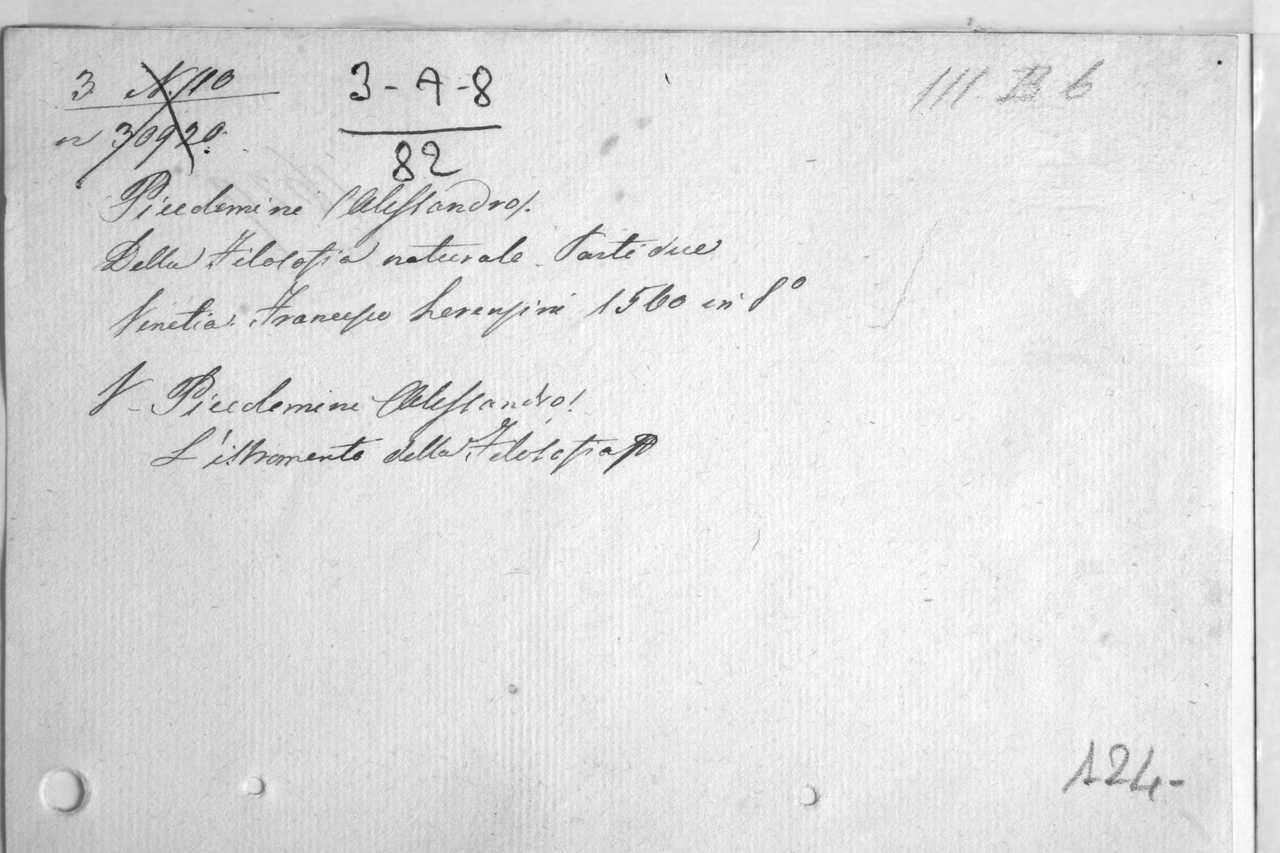 3 N. 10
3-A-8
III B 6
n 30920.
82
Piccolomini (Alessandro).
Della Filosofia naturale. Parti due
Venetia. Francesco Lorenzini 1560 in 8°
V. Piccolomini (Alessandro)
L'istromento della Filosofia
124-